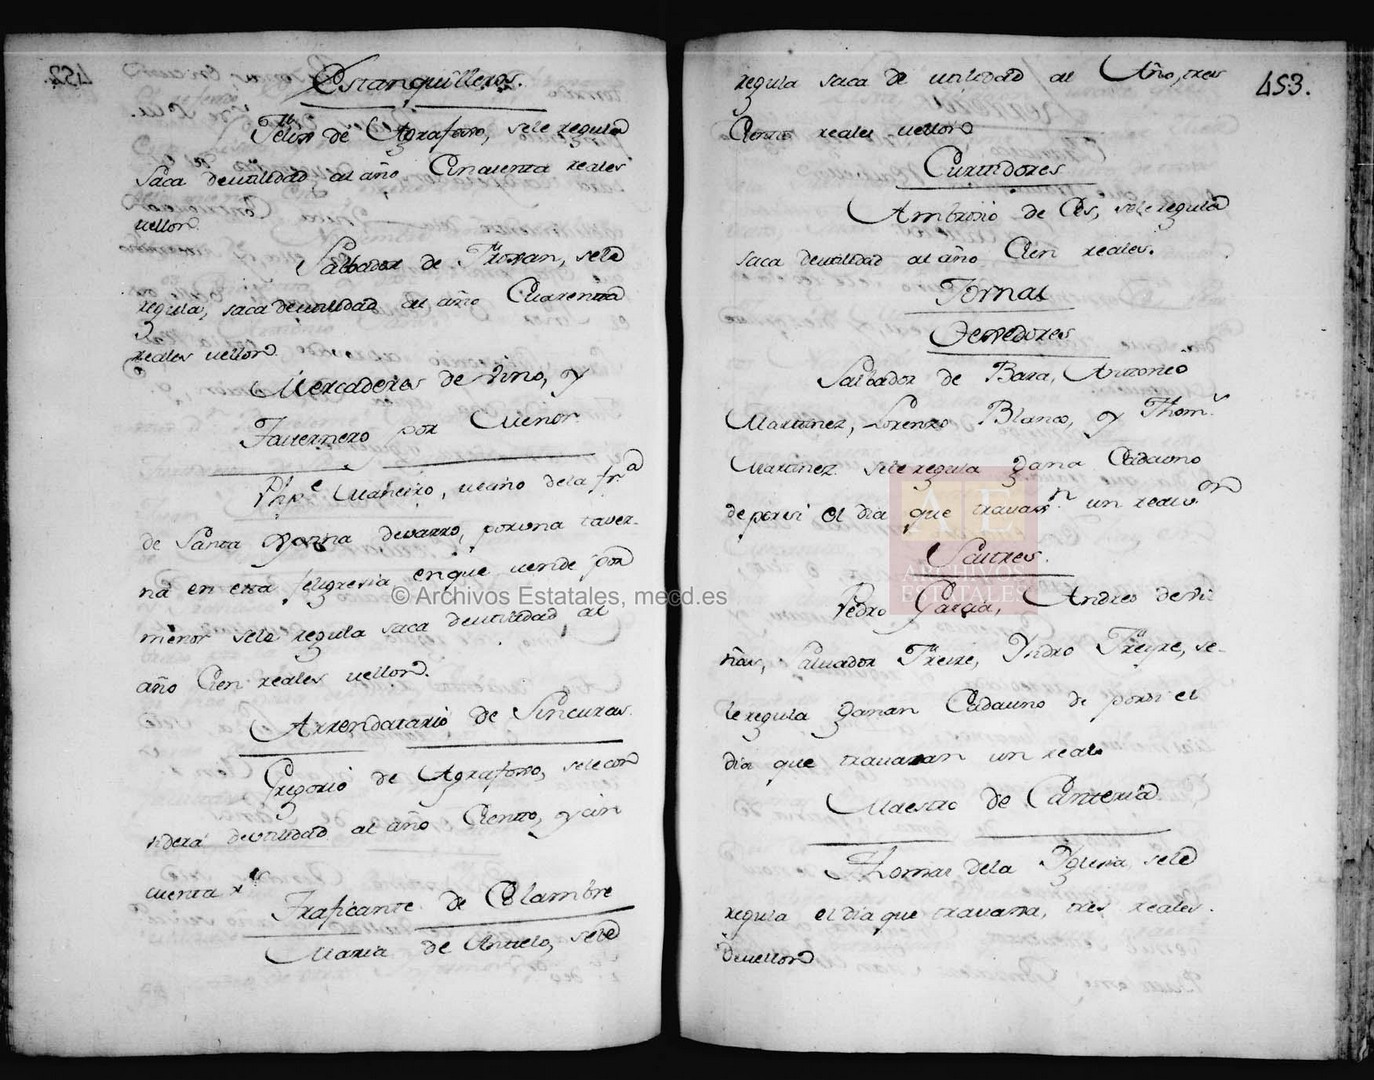 Estanquilleros.
Felis de Agrafoxo, sele regula
saca deutilidad al año Cinquenta reales
vellon.
Salbador de Troian, sele
regula, saca deutilidad al año Quarenta
reales vellon.
Mercaderes de Vino, y
Tauernero por Menor.
Phpe Maneiro, ucino dela frª
de Santa deuarro, poruna taver-
na en esta feligresia enque uende por
menor sele regula saca deutilidad al
año Cien reales vellon.
Arrendatario de Sincuras.
Gregorio de Agrafoxo, selecon
sidera deutilidad al año Ciento, ycin
cuenta rˢ
Traficante de Colambre
Maria de Antelo, sele
453.
regula saca de utilidad al Año, tres
Cientos reales vellon
Curtidores
Ambrosio de Ces, sele regula
saca deutilidad al año Cien reales.
Jornal
Texedores
Salbador de Bara, Antonio
Martinez, Lorenzo Blanco, y Thomˢ
Martinez sele regula gana Cadauno
deporsi el dia que travaxn un realvon
Sastres.
Pedro Garzia, Andres deVi
ñas, Saluador Freire, Ysidro Freyre, se-
leregula ganan Cadauno de porsi el
dia que travaxan un real
Maestro de Canteria
Thomas dela Yglesia, sele
regula el dia que travaxa, tres reales.
Deuellon
© Archivos Estatales, mecd.es
AE
ARCHIVOS
ESTATALES